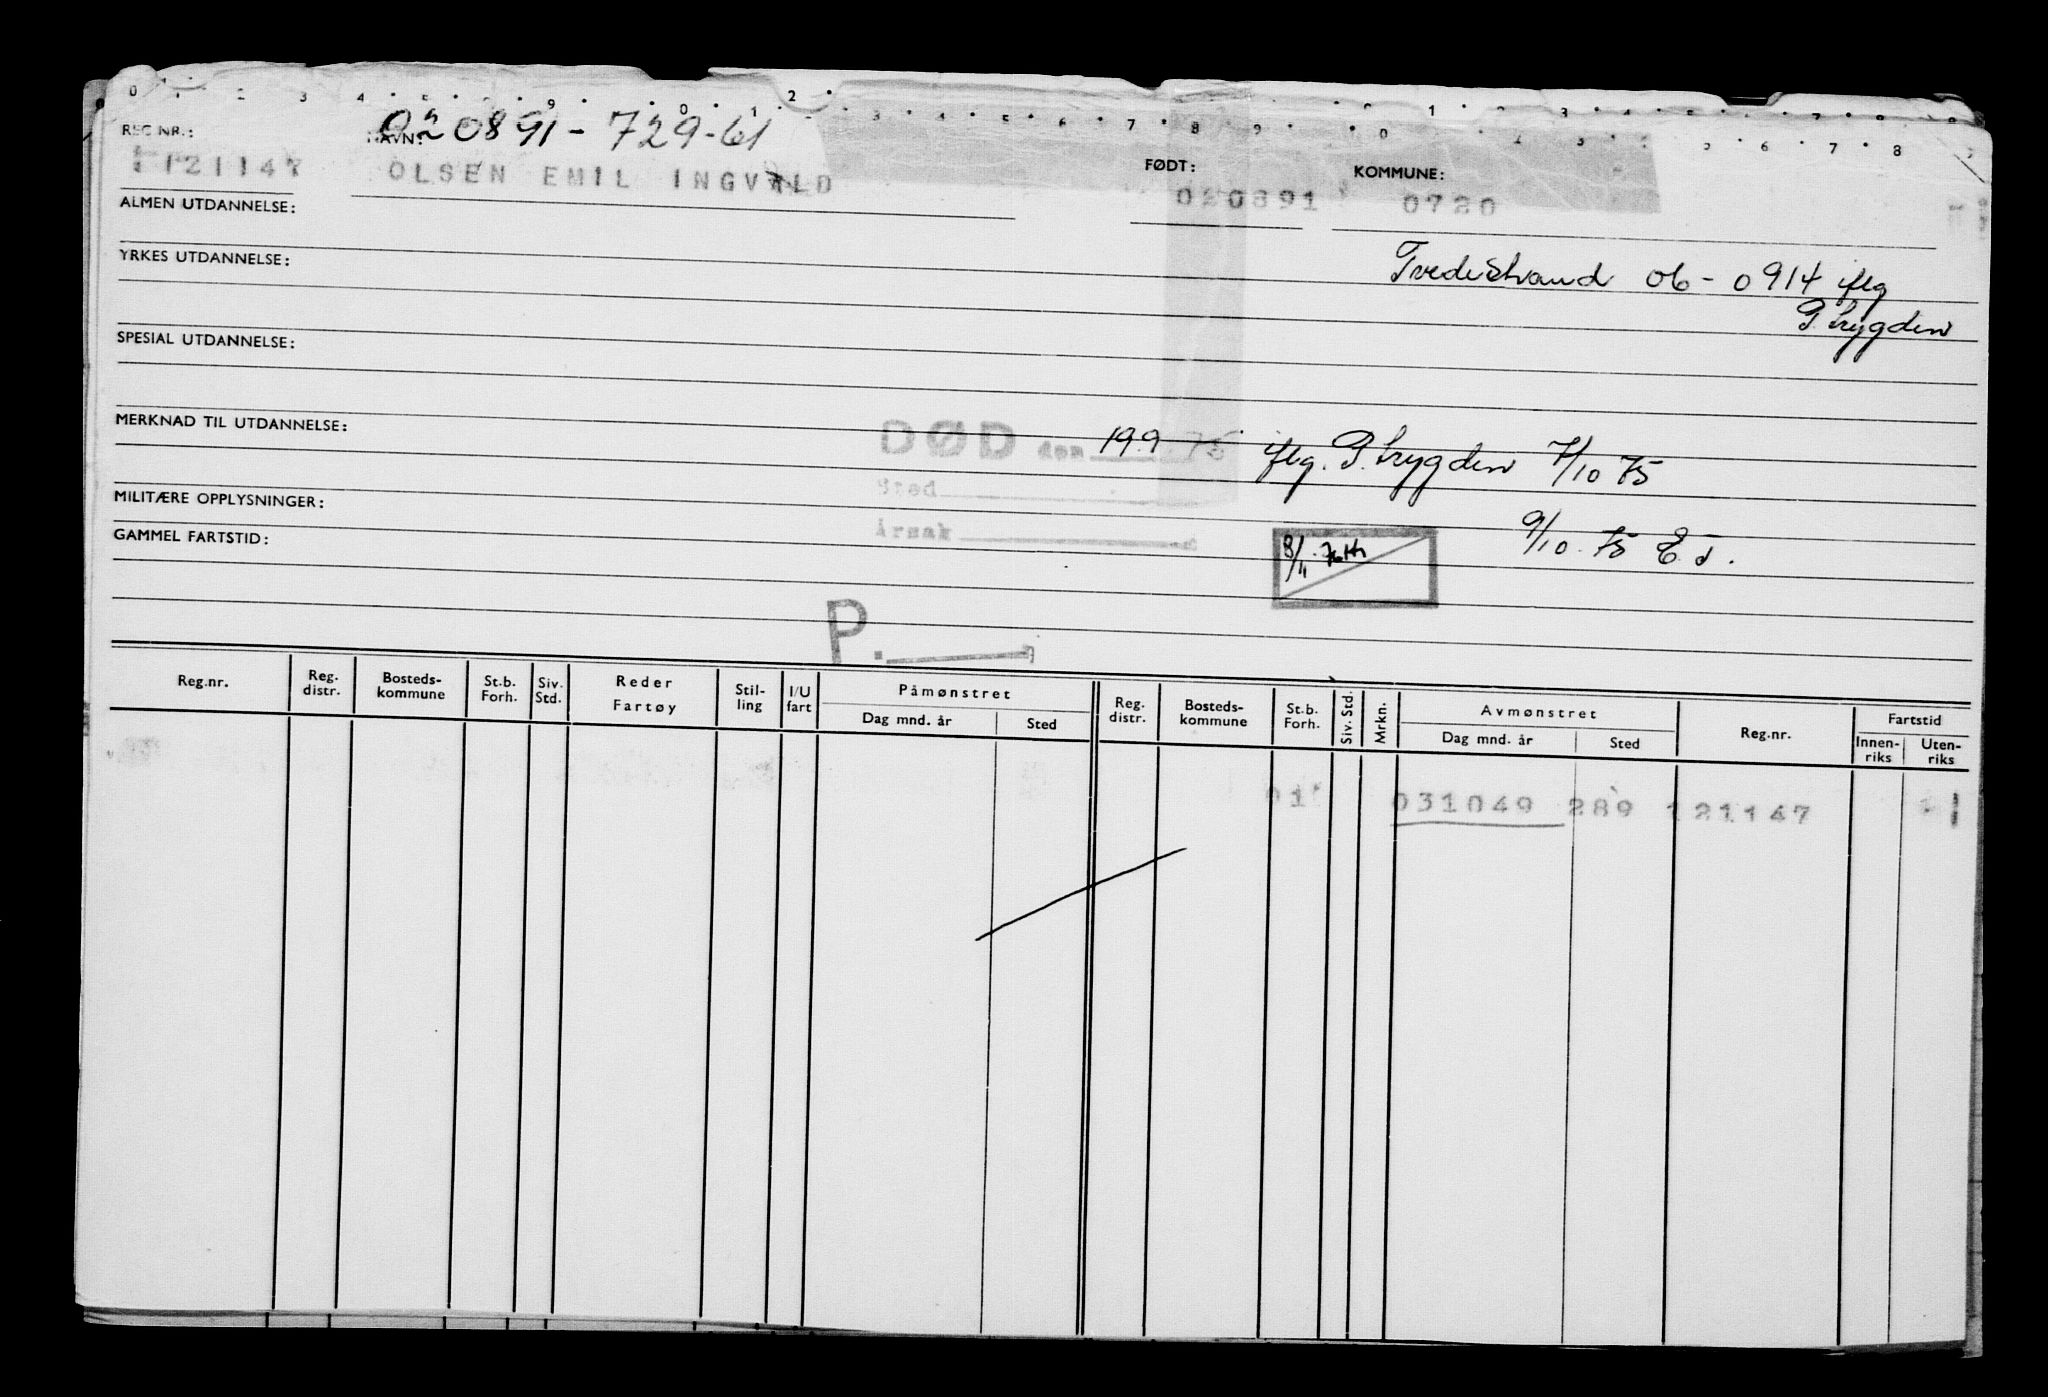 020891-729-61
REG NR.: NAVN: FØDT: KOMMUNE:
121147 OLSEN EMIL INGVALD 020891 0720
ALMEN UTDANNELSE:
YRKES UTDANNELSE:
Tvedestrand 06-0914 iflg
P.trygden
SPESIAL UTDANNELSE:
MERKNAD TIL UTDANNELSE:
DØD den 19.9 75 iflg. P.trygden 7/10 75
Sted
MILITÆRE OPPLYSNINGER:
Årsak
9/10. 75 E.J.
GAMMEL FARTSTID:
8/11
P.
Reg.nr. Reg. distr. Bosteds- kommune St.b. Forh. Siv. Std. Reder Fartøy Stil- ling I/U fart Påmønstret Dag mnd. år Sted Reg. distr. Bosteds- kommune St.b. Forh. Siv. Std. Mrkn. Avmønstret Dag mnd. år Sted Reg.nr. Fartstid Innen- riks Uten- riks
01 031049 289 121147